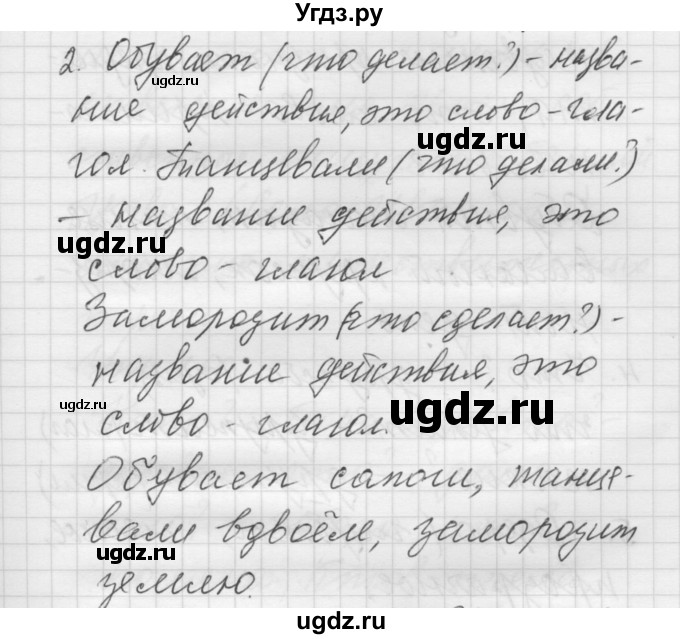 Угдз.ру
2. Обувает (что делает?) - назва-
ние действия, это слово - гла-
гол. Танцевали (что делали?)
- название действия, это
слово - глагол
Заморозит (что сделает?) -
название действия, это
слово - глагол.
Обувает сапоги, танце-
вали вдвоём, заморозит
землю.
ugdz.ru
ugdz.ru
ugdz.ru
ugdz.ru
ugdz.ru
ugdz.ru
ugdz.ru